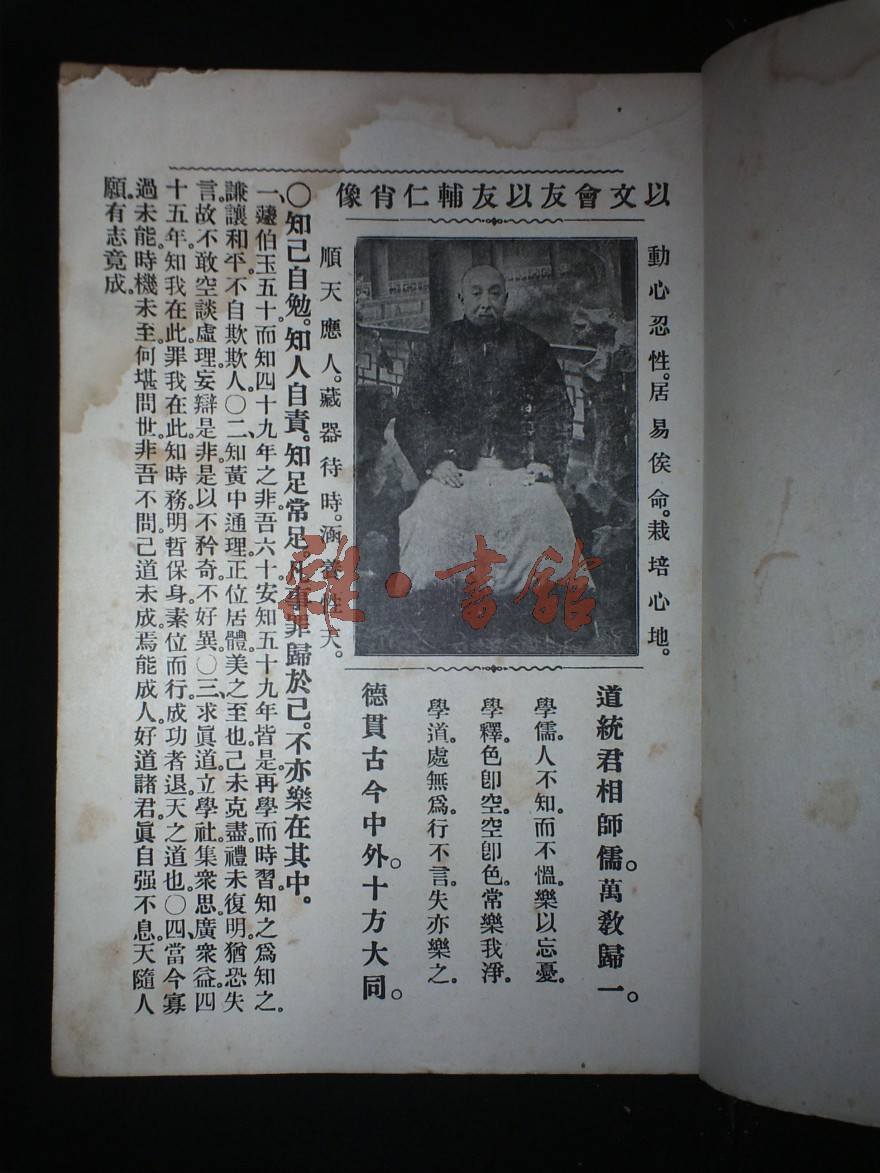 以文會友以友輔仁肖像
動心忍性。居易俟命。栽培心地。
順天應人。藏器待時。涵養性天。
道統君相師儒。萬教歸一。
學儒。人不知而不慍。樂以忘憂。
學釋。色卽空。空卽色。常樂我淨。
學道。處無爲。行不言。失亦樂之。
德貫古今中外。十方大同。
〇知己自勉。知人自責。知足常足。凡事罪歸於己。不亦樂在其中。
一、蘧伯玉五十而知四十九年之非。吾六十安知五十九年皆是。再學而時習。知之爲知之。
謙讓和平。不自欺欺人。〇二、知黃中通理。正位居體。美之至也。己未克盡。禮未復明。猶恐失
言。故不敢空談虛理。妄辯是非。是以不矜奇。不好異。〇三、求眞道。立學社。集衆思。廣衆益。四
十五年。知我在此。罪我在此。知時務。明哲保身。素位而行。成功者退。天之道也。〇四、當今寡
過未能。時機未至。何堪問世。非吾不問。己道未成。焉能成人。好道諸君。眞自强不息。天隨人
願。有志竟成。
雜·書館